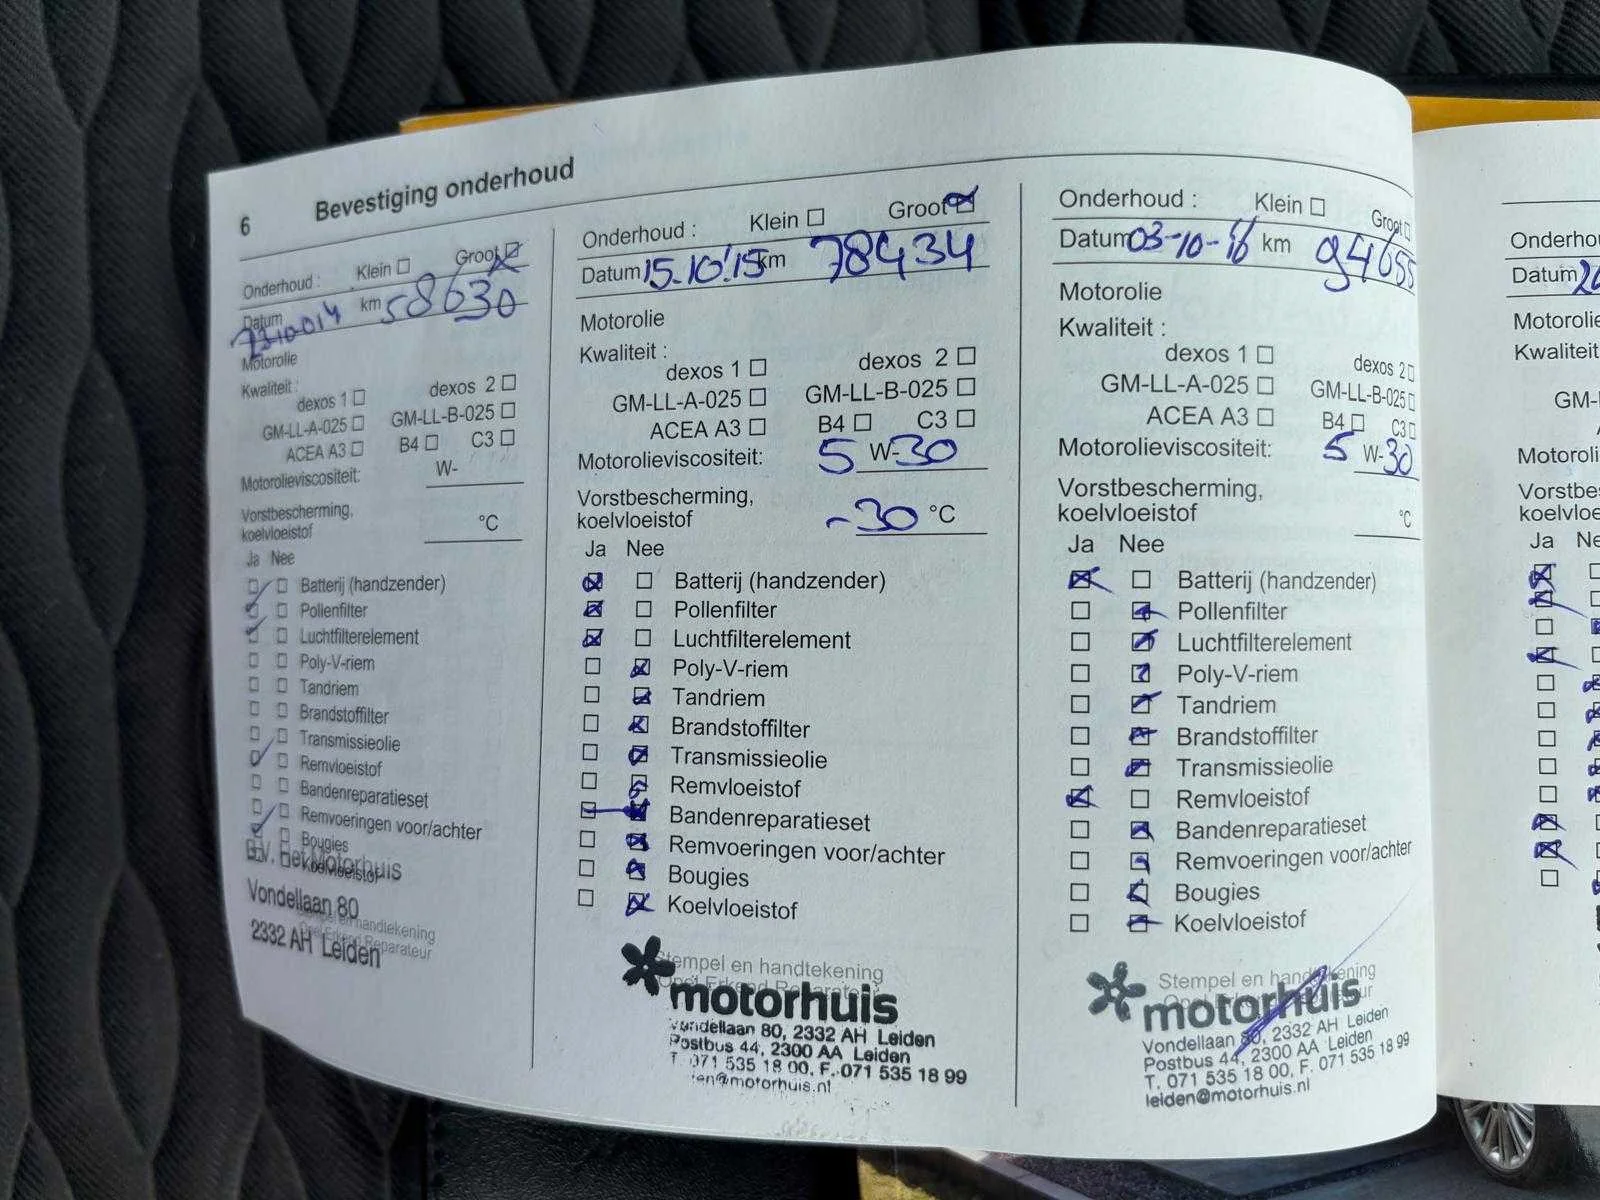 6 Bevestiging onderhoud
Onderhoud : Klein Groot
Datum 23-10-014 km 58630
Motorolie
Kwaliteit :
dexos 1 dexos 2
GM-LL-A-025 GM-LL-B-025
ACEA A3 B4 C3
Motorolieviscositeit: W-
Vorstbescherming,
koelvloeistof °C
Ja Nee
Batterij (handzender)
Pollenfilter
Luchtfilterelement
Poly-V-riem
Tandriem
Brandstoffilter
Transmissieolie
Remvloeistof
Bandenreparatieset
Remvoeringen voor/achter
Bougies
Koelvloeistof
B.V. Het Motorhuis
Vondellaan 80
Stempel en handtekening
Opel Erkend Reparateur
2332 AH Leiden
Onderhoud : Klein Groot
Datum 15.10.'15 km 78434
Motorolie
Kwaliteit :
dexos 1 dexos 2
GM-LL-A-025 GM-LL-B-025
ACEA A3 B4 C3
Motorolieviscositeit: 5 W-30
Vorstbescherming,
koelvloeistof -30 °C
Ja Nee
Batterij (handzender)
Pollenfilter
Luchtfilterelement
Poly-V-riem
Tandriem
Brandstoffilter
Transmissieolie
Remvloeistof
Bandenreparatieset
Remvoeringen voor/achter
Bougies
Koelvloeistof
Stempel en handtekening
Opel Erkend Reparateur
motorhuis
Vondellaan 80, 2332 AH Leiden
Postbus 44, 2300 AA Leiden
T. 071 535 18 00, F. 071 535 18 99
@motorhuis.nl
Onderhoud : Klein Groot
Datum 03-10-16 km 94655
Motorolie
Kwaliteit :
dexos 1 dexos 2
GM-LL-A-025 GM-LL-B-025
ACEA A3 B4 C3
Motorolieviscositeit: 5 W-30
Vorstbescherming,
koelvloeistof °C
Ja Nee
Batterij (handzender)
Pollenfilter
Luchtfilterelement
Poly-V-riem
Tandriem
Brandstoffilter
Transmissieolie
Remvloeistof
Bandenreparatieset
Remvoeringen voor/achter
Bougies
Koelvloeistof
Stempel en handtekening
motorhuis
Vondellaan 80, 2332 AH Leiden
Postbus 44, 2300 AA Leiden
T. 071 535 18 00, F. 071 535 18 99
leiden@motorhuis.nl
Onderho
Datum
Motorolie
Kwaliteit
GM-
Motoroli
Vorstbes
koelvloeis
Ja Ne